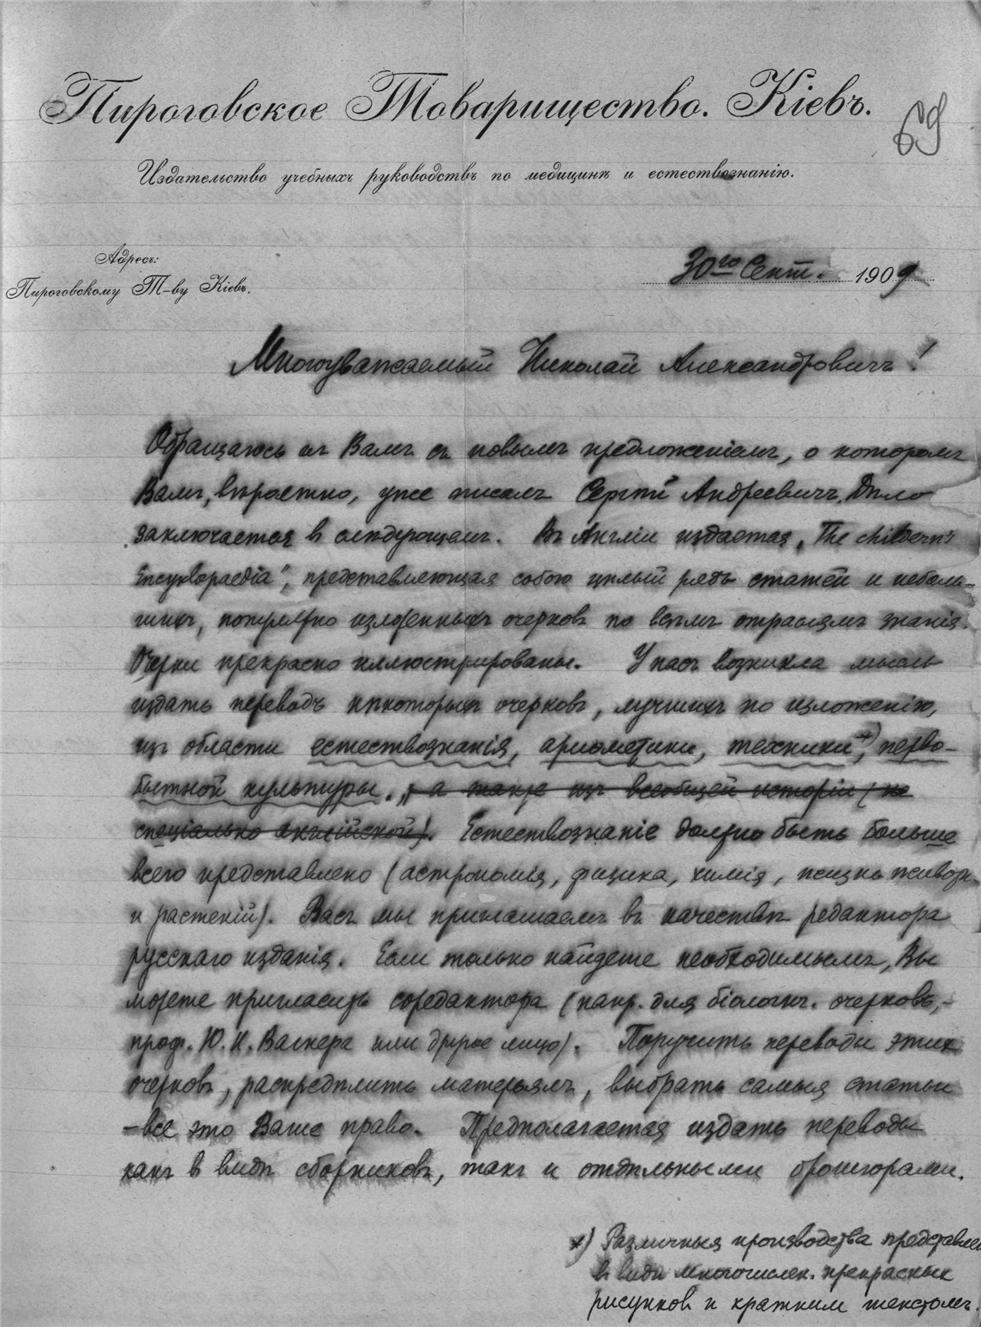 Пироговское Товарищество. Кіевъ.
69
Издательство учебныхъ руководствъ по медицинѣ и естествознанію.
Адресъ:
Пироговскому Т-ву Кіевъ.
30го Сент. 1909
Многоуважаемый Николай Александровичъ!
Обращаюсь къ Вамъ съ новымъ предложеніемъ, о которомъ
Вамъ, вѣроятно, уже писалъ Сергѣй Андреевичъ. Дѣло
заключается в слѣдующемъ. Въ Англіи издается „The children's
Encyclopaedia“, представляющая собою цѣлый рядъ статей и неболь-
шихъ, популярно изложенныхъ очерковъ по всѣмъ отраслямъ знанія.
Очерки прекрасно иллюстрированы. У насъ возникла мысль
издать переводъ нѣкоторыхъ очерковъ, лучшихъ по изложенію,
изъ области естествознанія, ариѳметики, техники*), перво-
бытной культуры. , а также изъ всеобщей исторіи (не
спеціально англійской). Естествознаніе должно быть больше
всего представлено (астрономія, физика, химія, жизнь животн.
и растеній). Васъ мы приглашаемъ въ качествѣ редактора
русскаго изданія. Если только найдете необходимымъ, Вы
можете пригласить соредактора (напр. для біологич. очерковъ,-
проф. Ю. Н. Вагнера или другое лицо). Поручить переводы этих
очерковъ, распредѣлить матерьялъ, выбрать самыя статьи
-все это Ваше право. Предполагается издать переводы
какъ в видѣ сборниковъ, такъ и отдѣльными брошюрами.
*) Различныя производства представлен
въ видѣ многочислен. прекрасных
рисунков и кратким текстомъ.